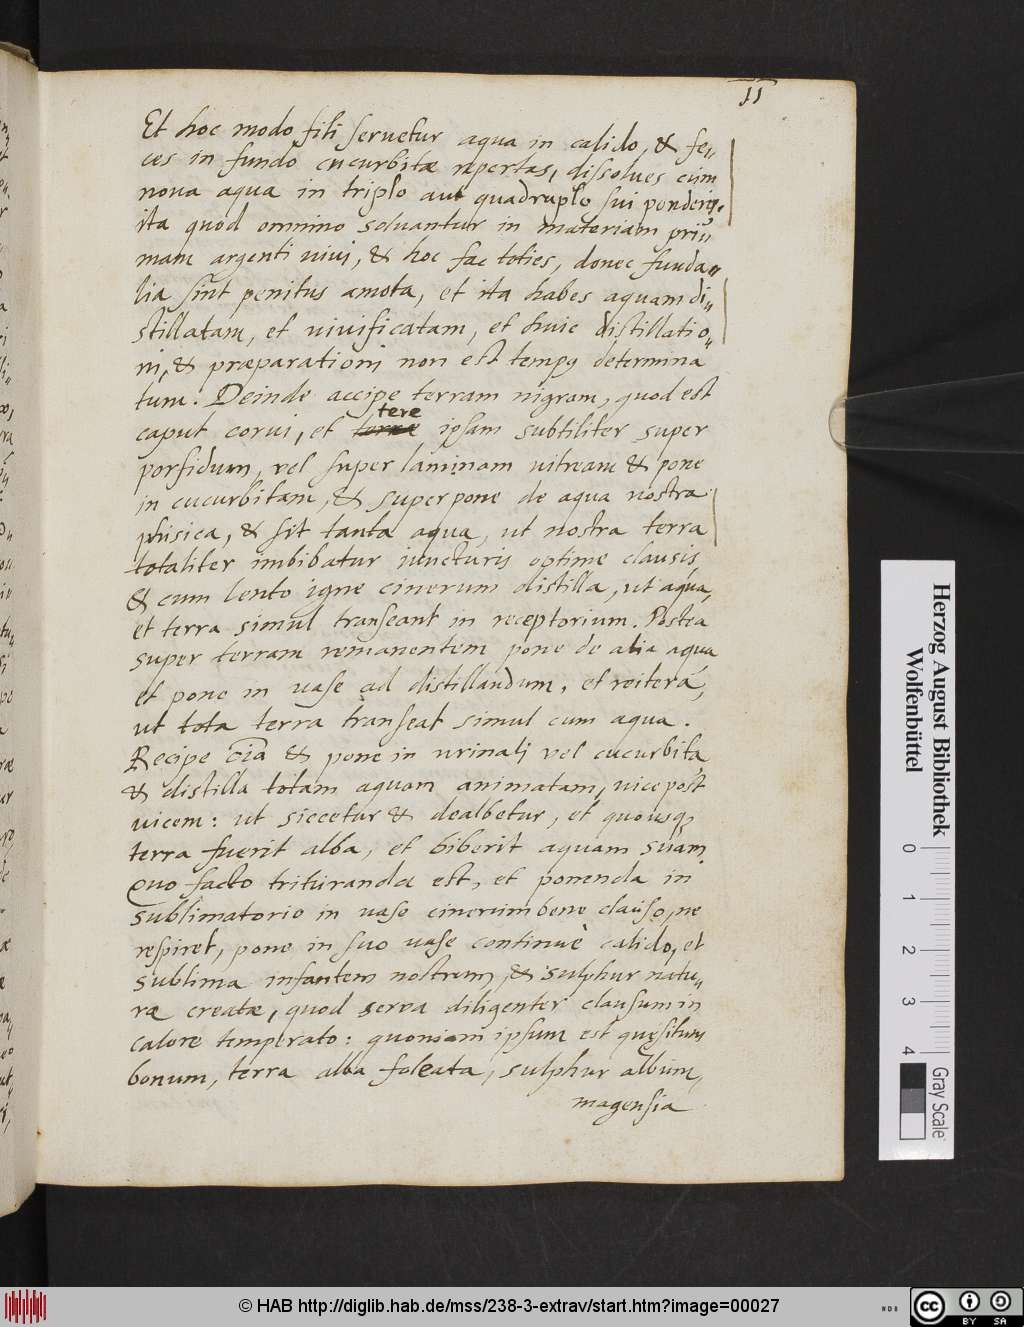 11
Et hoc modo fili servetur aqua in calido, & fe„
ces in fundo cucurbitæ repertas, dissolves cum
nova aqua in triplo aut quadruplo sui ponderis,
ita quod omnino solvantur in materiam pri„
mam argenti vivi, & hoc fac toties, donec funda„
lia sint penitus amota, et ita habes aquam di„
stillatam, et vivificatam, et huic distillatio„
ni, & præparationi non est tempꝰ determina
tum. Deinde accipe terram nigram, quod est
caput corvi, et tere ipsam subtiliter super
porfidum, vel super laminam vitream & pone
in cucurbitam, & superpone de aqua nostra
phisica, & sit tanta aqua, ut nostra terra
totaliter imbibatur iuncturis optime clausis,
& cum lento igne cinerum distilla, ut aqua,
et terra simul transeant in receptorium. Postea
super terram remanentem pone de alia aqua
et pone in vase ad distillandum, et reitera,
ut tota terra transeat simul cum aqua.
Recipe oīa & pone in urinali vel cucurbita,
& distilla totam aquam animatam, vice post
vicem: ut siccetur & dealbetur, et quousq;
terra fuerit alba, et biberit aquam suam.
Quo facto trituranda est, et ponenda in
sublimatorio in vase cinerum bene clauso, ne
respiret, pone in suo vase continuè calido, et
sublima infantem nostrum, & sulphur natu„
ræ creatæ, quod serva diligenter clausum in
calore temperato: quoniam ipsum est quęsitum
bonum, terra alba foleata, sulphur album,
magensia
Herzog August Bibliothek
Wolfenbüttel
0 1 2 3 4
Gray Scale
© HAB http://diglib.hab.de/mss/238-3-extrav/start.htm?image=00027
cc BY SA